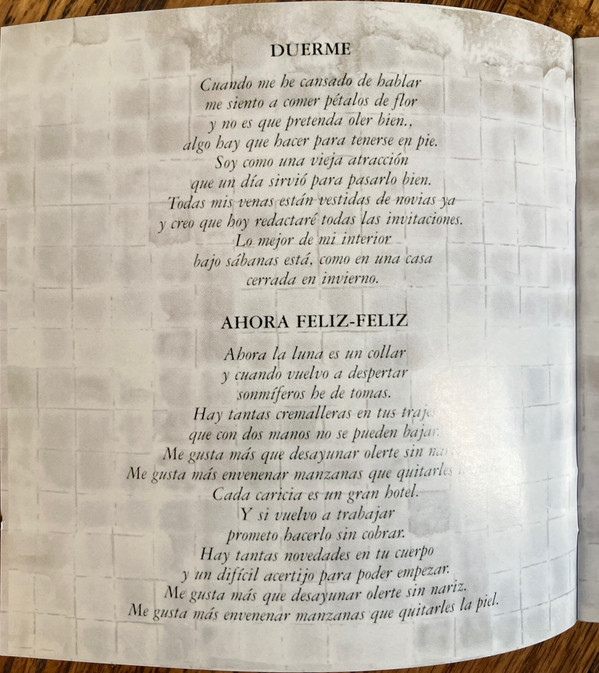 DUERME
Cuando me he cansado de hablar
me siento a comer pétalos de flor
y no es que pretenda oler bien.,
algo hay que hacer para tenerse en pie.
Soy como una vieja atracción
que un día sirvió para pasarlo bien.
Todas mis venas están vestidas de novias ya
y creo que hoy redactaré todas las invitaciones.
Lo mejor de mi interior
bajo sábanas está, como en una casa
cerrada en invierno.
AHORA FELIZ-FELIZ
Ahora la luna es un collar
y cuando vuelvo a despertar
somníferos he de tomas.
Hay tantas cremalleras en tus
que con dos manos no se pueden bajar.
Me gusta más que desayunar olerte sin
Me gusta más envenenar manzanas que quitarles
Cada caricia es un gran hotel.
Y si vuelvo a trabajar
prometo hacerlo sin cobrar.
Hay tantas novedades en tu cuerpo
y un difícil acertijo para poder empezar.
Me gusta más que desayunar olerte sin nariz.
Me gusta más envenenar manzanas que quitarles la piel.